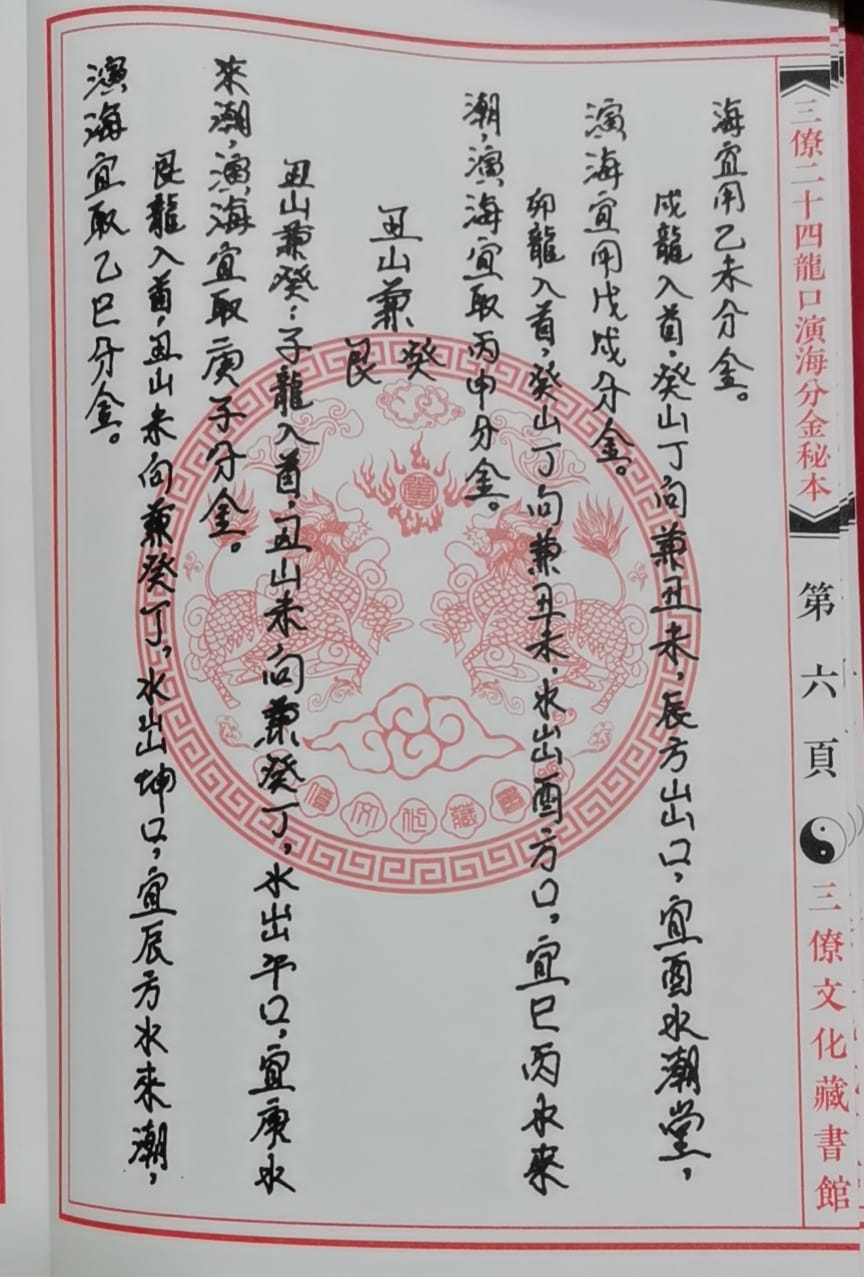 三僚二十四龍口演海分金秘本
第六頁
三僚文化藏書館
海宜用乙未分金。
戌龍入首，癸山丁向兼丑未，辰方出口，宜酉水潮堂，
演海宜用戊戌分金。
卯龍入首，癸山丁向兼丑未，水出酉方口，宜巳丙水來
潮，演海宜取丙申分金。
丑山兼癸艮
丑山兼癸：子龍入首，丑山未向兼癸丁，水出午口，宜庚水
來潮，演海宜取庚子分金。
艮龍入首，丑山未向兼癸丁，水出坤口，宜辰方水來潮，
演海宜取乙巳分金。